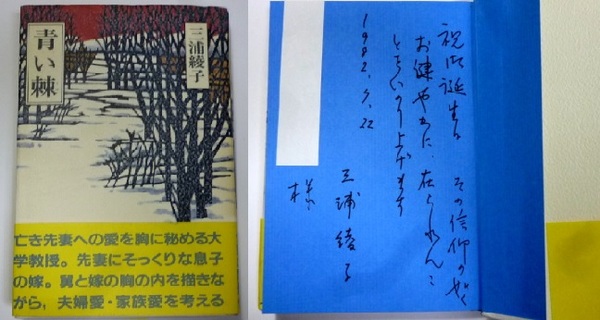 三浦綾子
青い棘
亡き先妻への愛を胸に秘める大
学教授。先妻にそっくりな息子
の嫁。舅と嫁の胸の内を描きな
がら、夫婦愛・家族愛を考える
祝御誕生日 その信仰の如く
お健やかに、在られんこ
とをいのり上げます
1982.7.22
三浦綾子
様